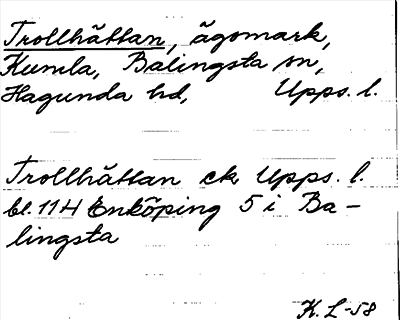 Trollhättan, ägomark,
Kumla, Balingsta sn,
Hagunda hd, Upps. l.
Trollhättan ek Upps. l.
bl. 114 Enköping 5 i Ba-
lingsta
K. L-58